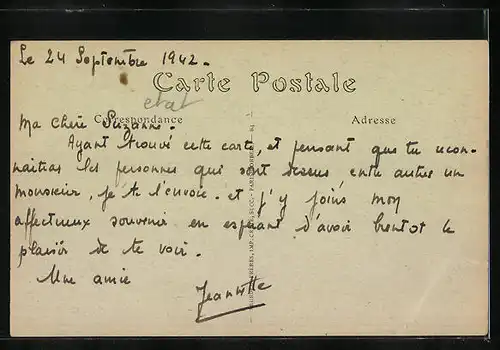 Le 24 Septembre 1942.
Carte Postale
etat
Correspondance
Adresse
Ma chère Suzanne.
Ayant trouvé cette carte, et pensant que tu recon-
naitras les personnes qui sont dessus entre autres un
monsieur, je te l'envoie. et j'y joins mon
affectueux souvenir en espérant d'avoir bientot le
plaisir de te voir.
Une amie
Jeannette